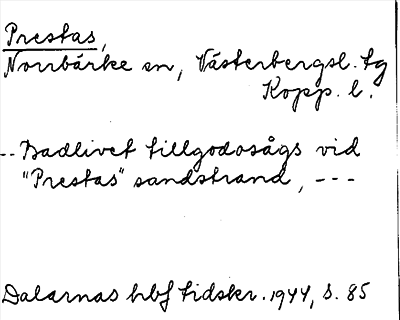 Prestas,
Norrbärke sn, Västerbergsl. tg
Kopp. l.
-- Badlivet tillgodosågs vid
"Prestas" sandstrand, ---
Dalarnas hbf tidskr. 1944, s. 85